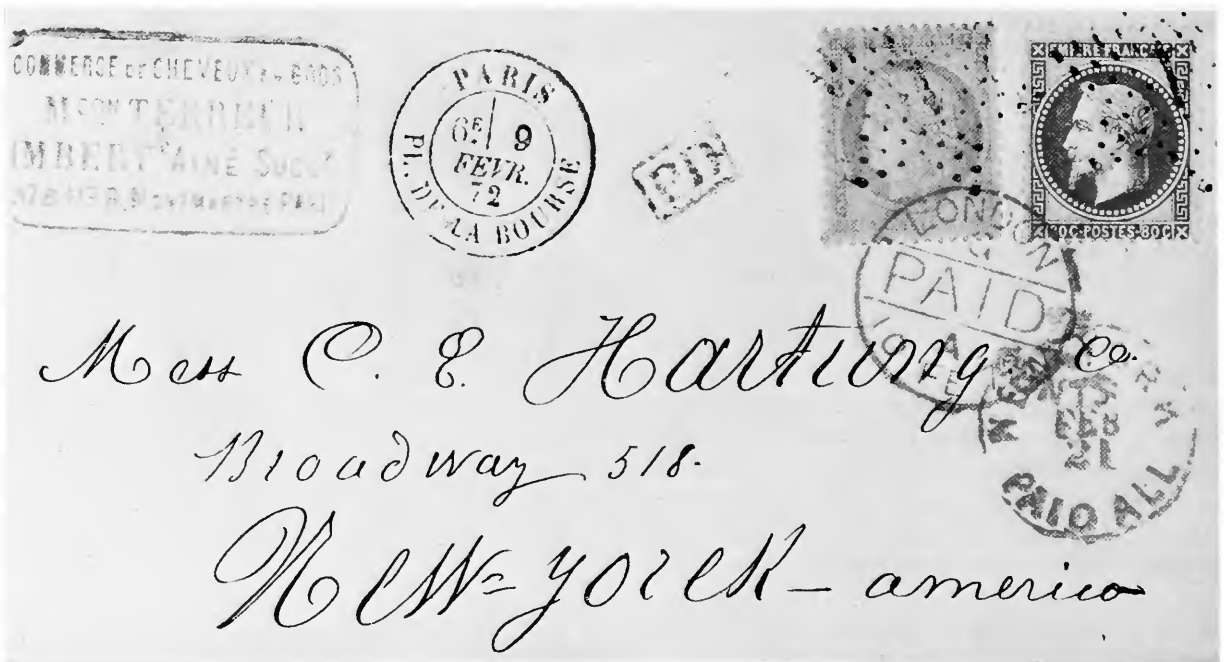 COMMERCE DE CHEVEUX EN GROS
Mson TERREUR
IMBERT AINÉ Succr
R. MONTMARTRE PARIS
PARIS
6E 9
FEVR.
72
PL. DE LA BOURSE
P.D
EMPIRE FRANÇAIS
80 C POSTES 80 C
LONDON
PAID
NEW
FEB
21
PAID ALL
Mess C. E. Hartung Co.
Broadway 518.
New=yorck - america